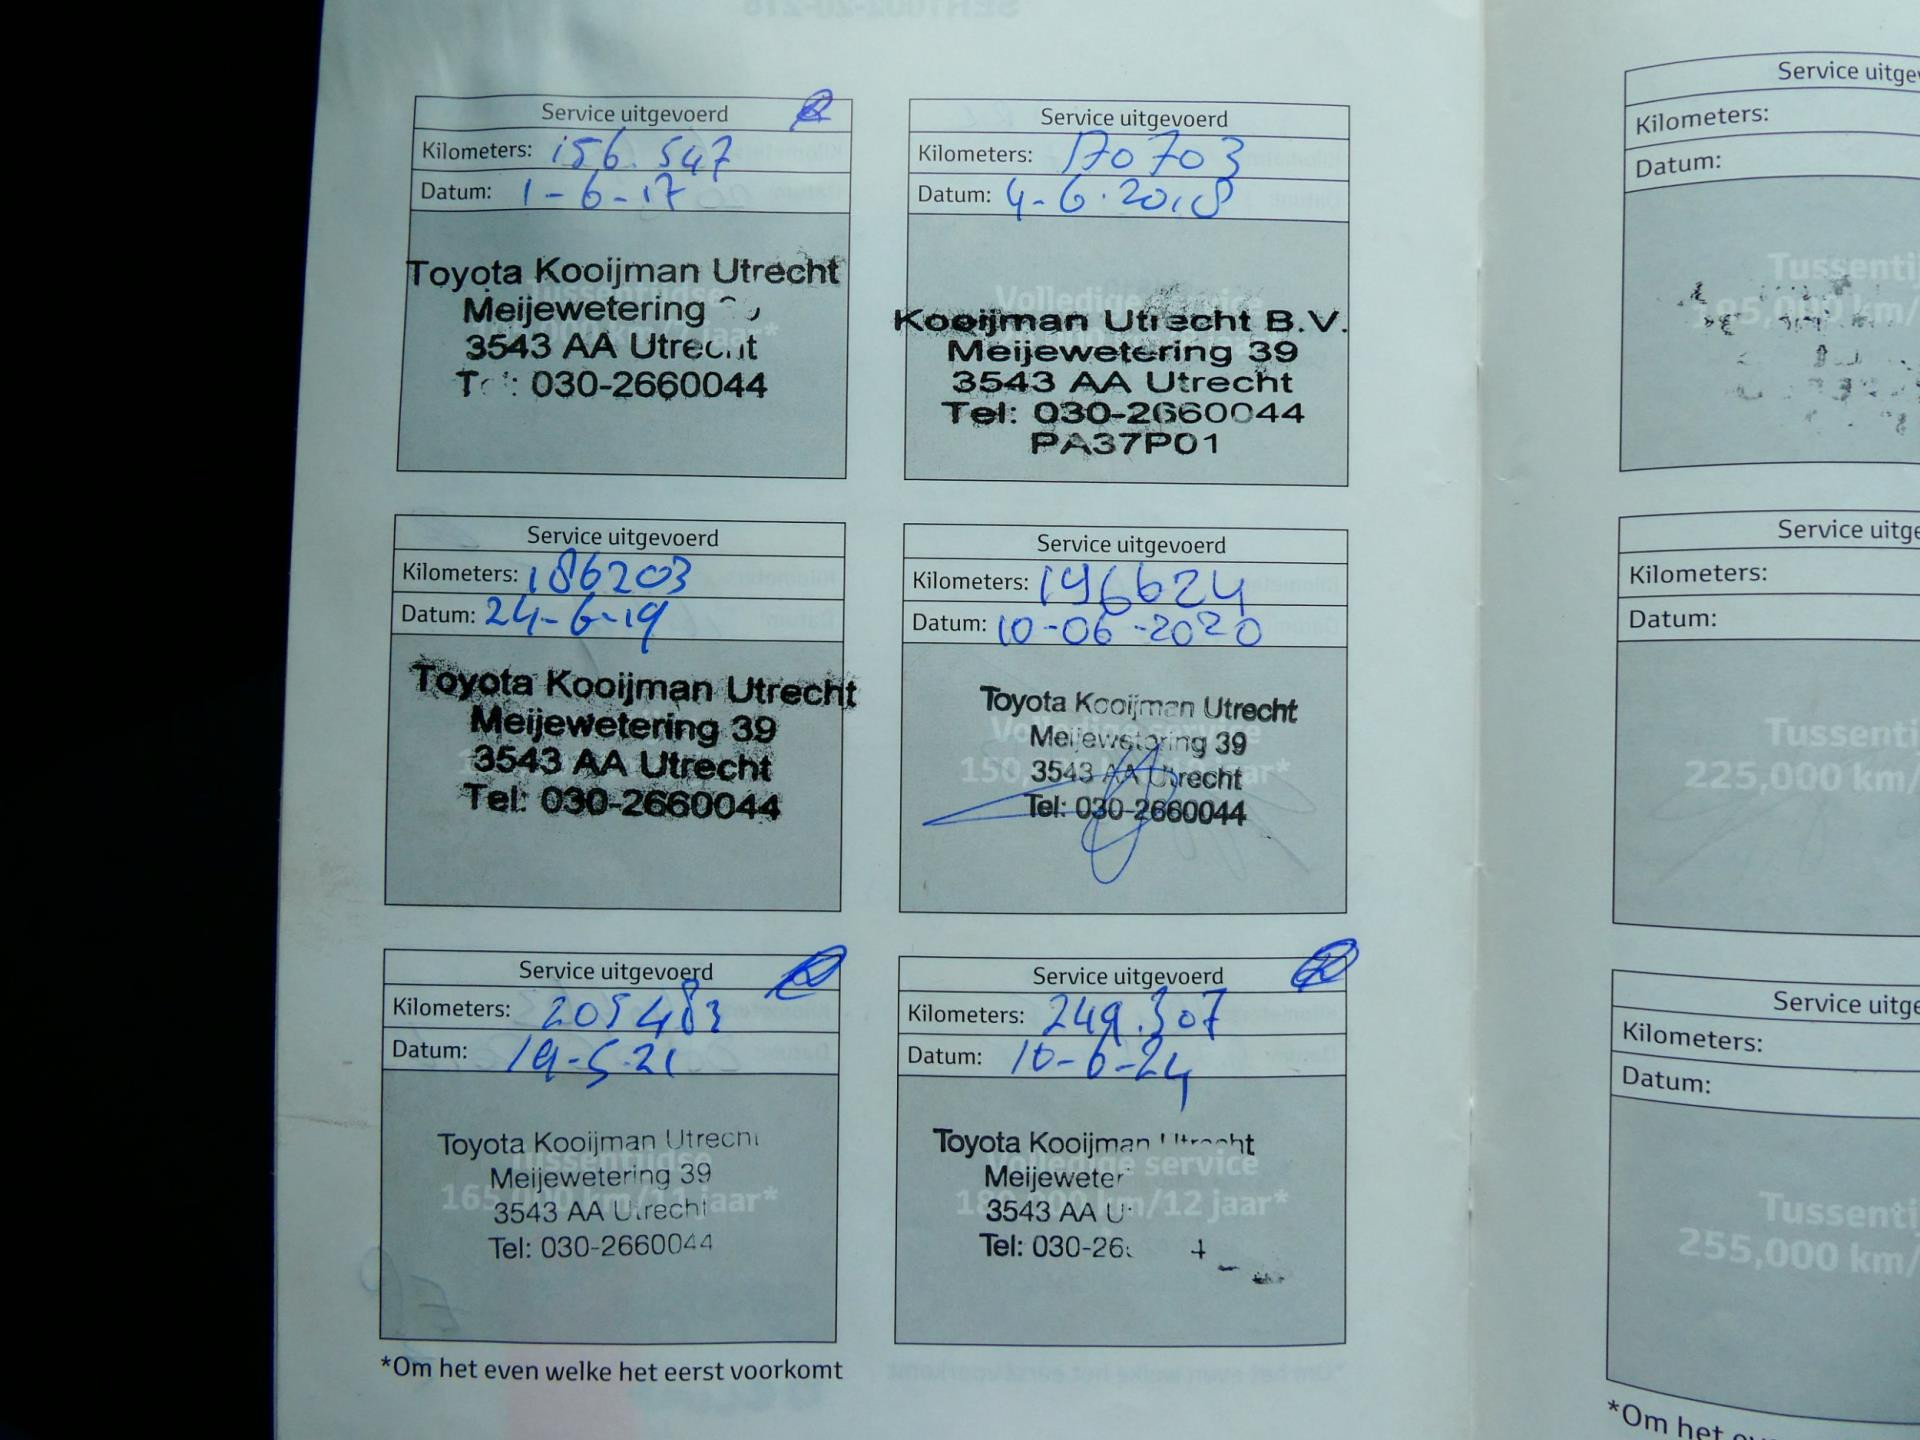 Service uitgevoerd
Kilometers: 156.547
Datum: 1-6-17
Toyota Kooijman Utrecht
Meijewetering
3543 AA Utrecht
030-2660044
Service uitgevoerd
Kilometers: 170703
Datum: 4-6-2018
Volledige service
Kooijman Utrecht B.V.
Meijewetering 39
3543 AA Utrecht
Tel: 030-2660044
PA37P01
Service uitgevoerd
Kilometers: 186203
Datum: 24-6-19
Toyota Kooijman Utrecht
Meijewetering 39
3543 AA Utrecht
Tel: 030-2660044
Service uitgevoerd
Kilometers: 196624
Datum: 10-06-2020
Toyota Kooijman Utrecht
Volledige service
Meijewetering 39
3543 AA Utrecht
Tel: 030-2660044
Service uitgevoerd
Kilometers: 205483
Datum: 19-5-21
Toyota Kooijman Utrecht
Tussentijdse
Meijewetering 39
165,000 km/11 jaar*
3543 AA Utrecht
Tel: 030-2660044
Service uitgevoerd
Kilometers: 249.307
Datum: 10-6-24
Toyota Kooijman Utrecht
Volledige service
180,000 km/12 jaar*
3543 AA
Tel: 030-26
*Om het even welke het eerst voorkomt
Service
Kilometers:
Datum:
195,000 km/
Service
Kilometers:
Datum:
225,000 km/
Service
Kilometers:
Datum:
255,000 km/
*Om het